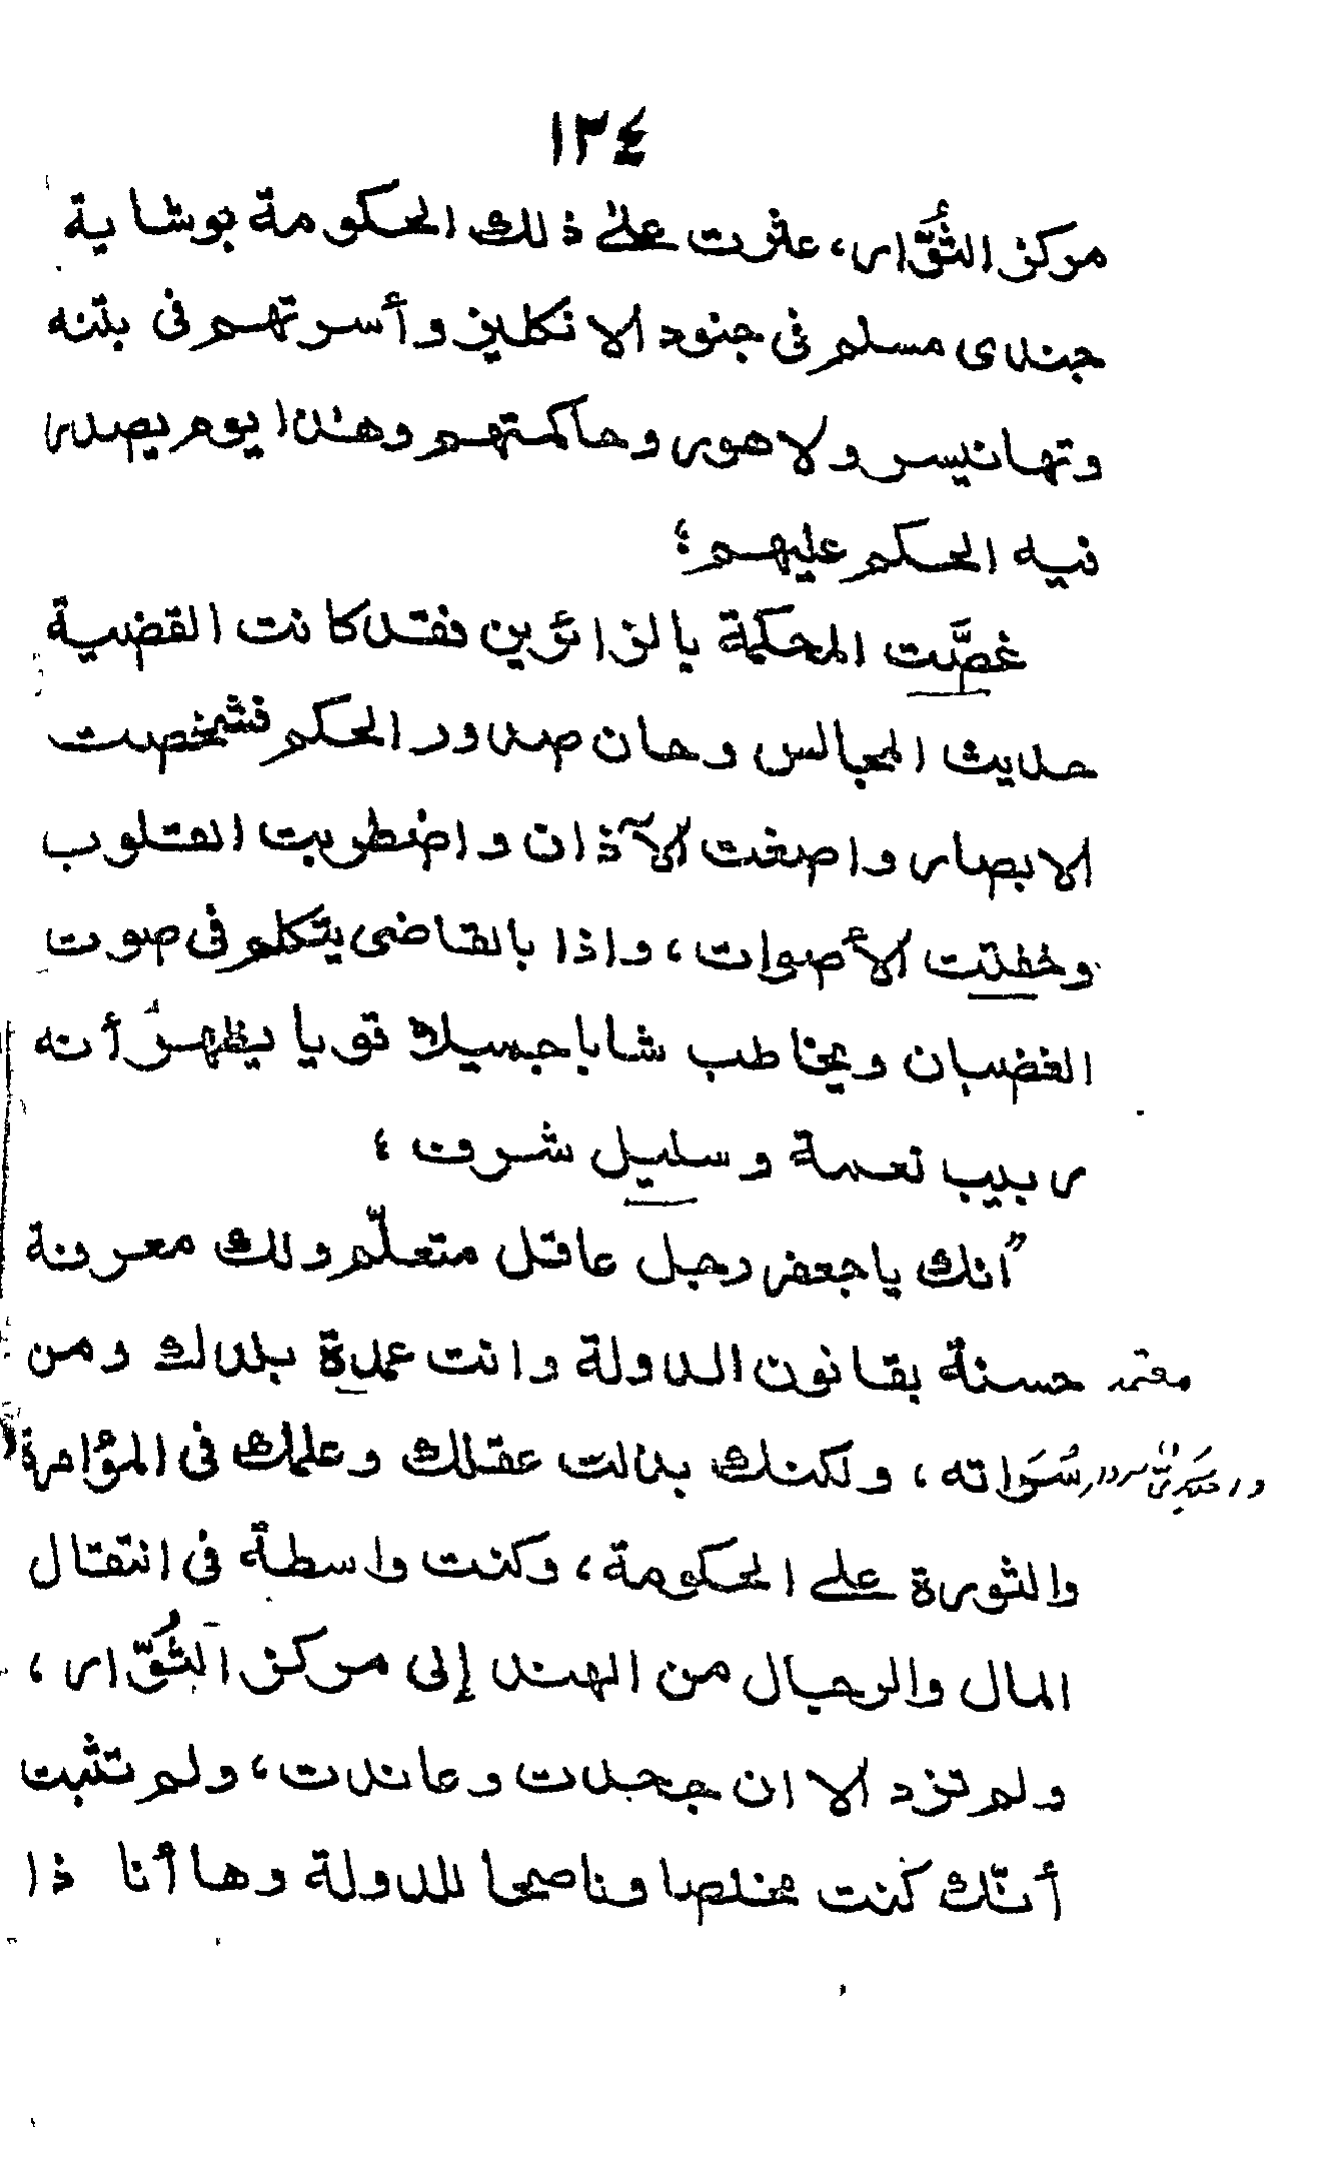 ١٣٤
مركز الثُّوَّار، عثرت على ذلك الحكومة بوشاية
جندى مسلم فى جنود الانكليز وأسرتهم فى بتنه
وتهانيسر ولاهور وحاكمتهم وهذا يوم يصدر
فيه الحكم عليهم؛
غصَّت المحكمة بالزائرين فقد كانت القضية
حديث المجالس وحان صدور الحكم فشخصت
الابصار واصغت الآذان واضطربت القلوب
وخفتت الأصوات، واذا بالقاضى يتكلم فى صوت
الغضبان ويخاطب شابا جميلا قويا يظهر أنه
ربيب نعمة وسليل شرف؛
"انك ياجعفر رجل عاقل متعلّم ولك معرفة
حسنة بقانون الدولة وانت عمدة بلدك ومن
معتمد
سُرَواته، ولكنك بذلت عقلك وعلمك فى المؤامرة
والثورة على الحكومة، وكنت واسطة فى انتقال
المال والرجال من الهند إلى مركز الثُّوّار،
ولم تزد الا ان جحدت وعاندت، ولم تثبت
أنّك كنت مخلصا وناصحا للدولة وها أنا ذا